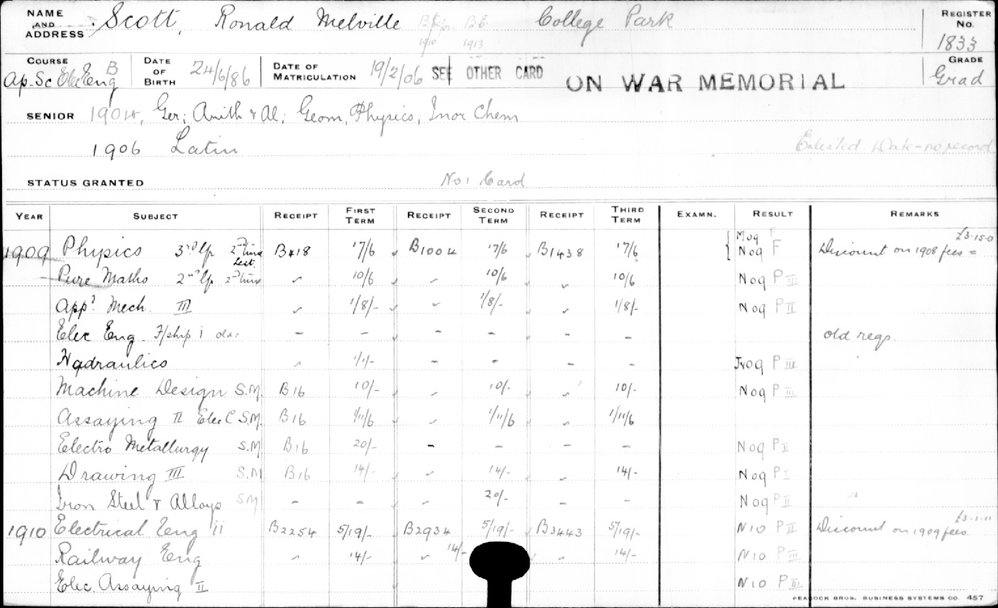 NAME AND ADDRESS Scott, Ronald Melville B.Sc. 1910 B.E. 1913 College Park REGISTER No. 1833
COURSE Ap. Sc Elec Eng B DATE OF BIRTH 24/6/86 DATE OF MATRICULATION 19/2/06 SEE OTHER CARD ON WAR MEMORIAL GRADE Grad
SENIOR 1904, Ger; Arith & Al; Geom, Physics, Inor Chem
1906 Latin Enlisted Date - no record
STATUS GRANTED No 1 Card
YEAR SUBJECT RECEIPT FIRST TERM RECEIPT SECOND TERM RECEIPT THIRD TERM EXAMN. RESULT REMARKS
1909 Physics 3rd Yr 2nd time Lect. B418 17/6 B1004 17/6 B1438 17/6 M09 F N09 F Discount on 1908 fees = £3-15-0
Pure Maths 2nd Yr 2nd time " 10/6 " 10/6 10/6 N09 P II
Appd Mech. III " 1/8/- " 1/8/- " 1/8/- N09 P II
Elec Eng. I - - - - - - old regs.
Hydraulics " 1/1/- - - - - N09 P III
Machine Design S.M. B16 10/- " 10/- " 10/- N09 P III
Assaying II Elec C S.M. B16 1/11/6 " 1/11/6 1/11/6
Electro Metallurgy S.M B16 20/- - - - - N09 P II
Drawing III S.M B16 14/- " 14/- " 14/- N09 P I
Iron Steel & Alloys SM - - - 20/- - - N09 P II
1910 Electrical Eng II B2254 5/19/- B2934 5/19/- B3443 5/19/- N10 P II Discount on 1909 fees £3-1-11
Railway Eng " 14/- 14/- " 14/- N10 P III
Elec. Assaying II N10 P III
PEACOCK BROS. BUSINESS SYSTEMS CO. 457